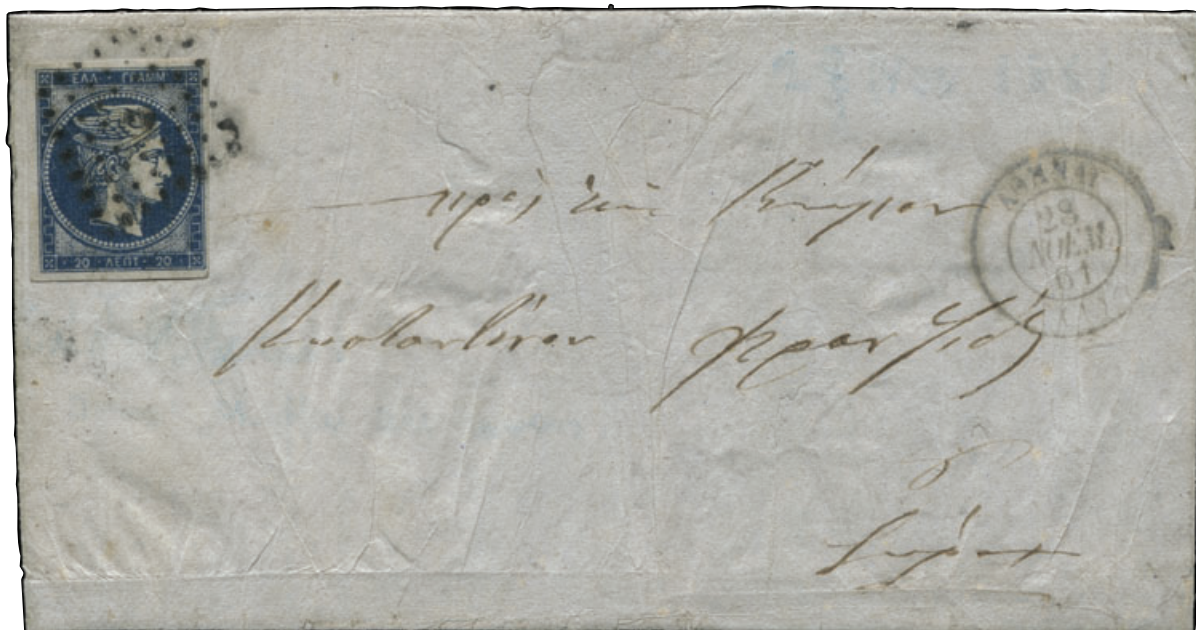 ΕΛΛ · ΓΡΑΜΜ
20 · ΛΕΠΤ · 20
ΑΘΗΝΑΙ
28
ΝΟΕΜ.
61
πρὸς τὸν Κύριον
Κωσταντῖνον
Σύραν